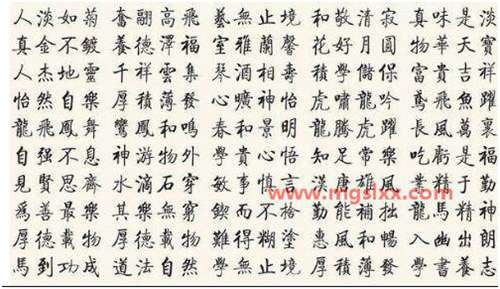 人淡如菊 奮翮高飛 藝無止境 和敬清寂 真味是淡
真金不鍍 養德澤福 室雅蘭馨 花好月圓 物華天寶
人杰地靈 千祥雲集 琴酒相壽 學儲保 富貴吉祥
怡然自樂 厚積薄發 曠神怡 虎嘯龍吟 鳶飛魚躍
龍飛鳳舞 鸞鳳和鳴 春和景明 龍騰虎躍 長風萬裏
自强不息 神游物外 學貴心悟 知足常樂 吃虧是福
見賢思齊 水滴石穿 敏事慎言 漢唐雄風 業精于勤
為善最樂 其樂無窮 鍥而不捨 勤能補拙 龍馬精神
厚德載物 厚德載物 難得糊塗 惠風和暢 入幽出朗
馬到功成 道法自然 學無止境 厚積薄發 學書養志
www.mgslxx.com